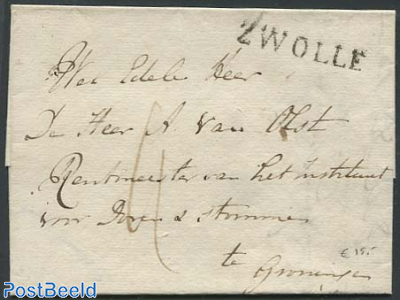 ZWOLLE
Wel Edele Heer
De Heer A van Olst
Rentmeester van het Instituut
voor Doven & Stommen
te Groningen
€ 15.-
PostBeeld